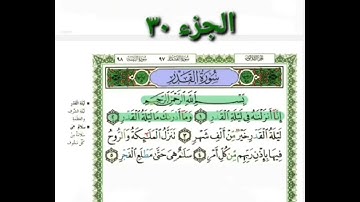 الجزء ٣٠
سُورَةُ الْقَدْرِ
بِسْمِ اللَّهِ الرَّحْمَٰنِ الرَّحِيمِ
إِنَّا أَنزَلْنَاهُ فِي لَيْلَةِ الْقَدْرِ ١ وَمَا أَدْرَاكَ مَا لَيْلَةُ الْقَدْرِ ٢
لَيْلَةُ الْقَدْرِ خَيْرٌ مِّنْ أَلْفِ شَهْرٍ ٣ تَنَزَّلُ الْمَلَائِكَةُ وَالرُّوحُ
فِيهَا بِإِذْنِ رَبِّهِم مِّن كُلِّ أَمْرٍ ٤ سَلَامٌ هِيَ حَتَّىٰ مَطْلَعِ الْفَجْرِ ٥